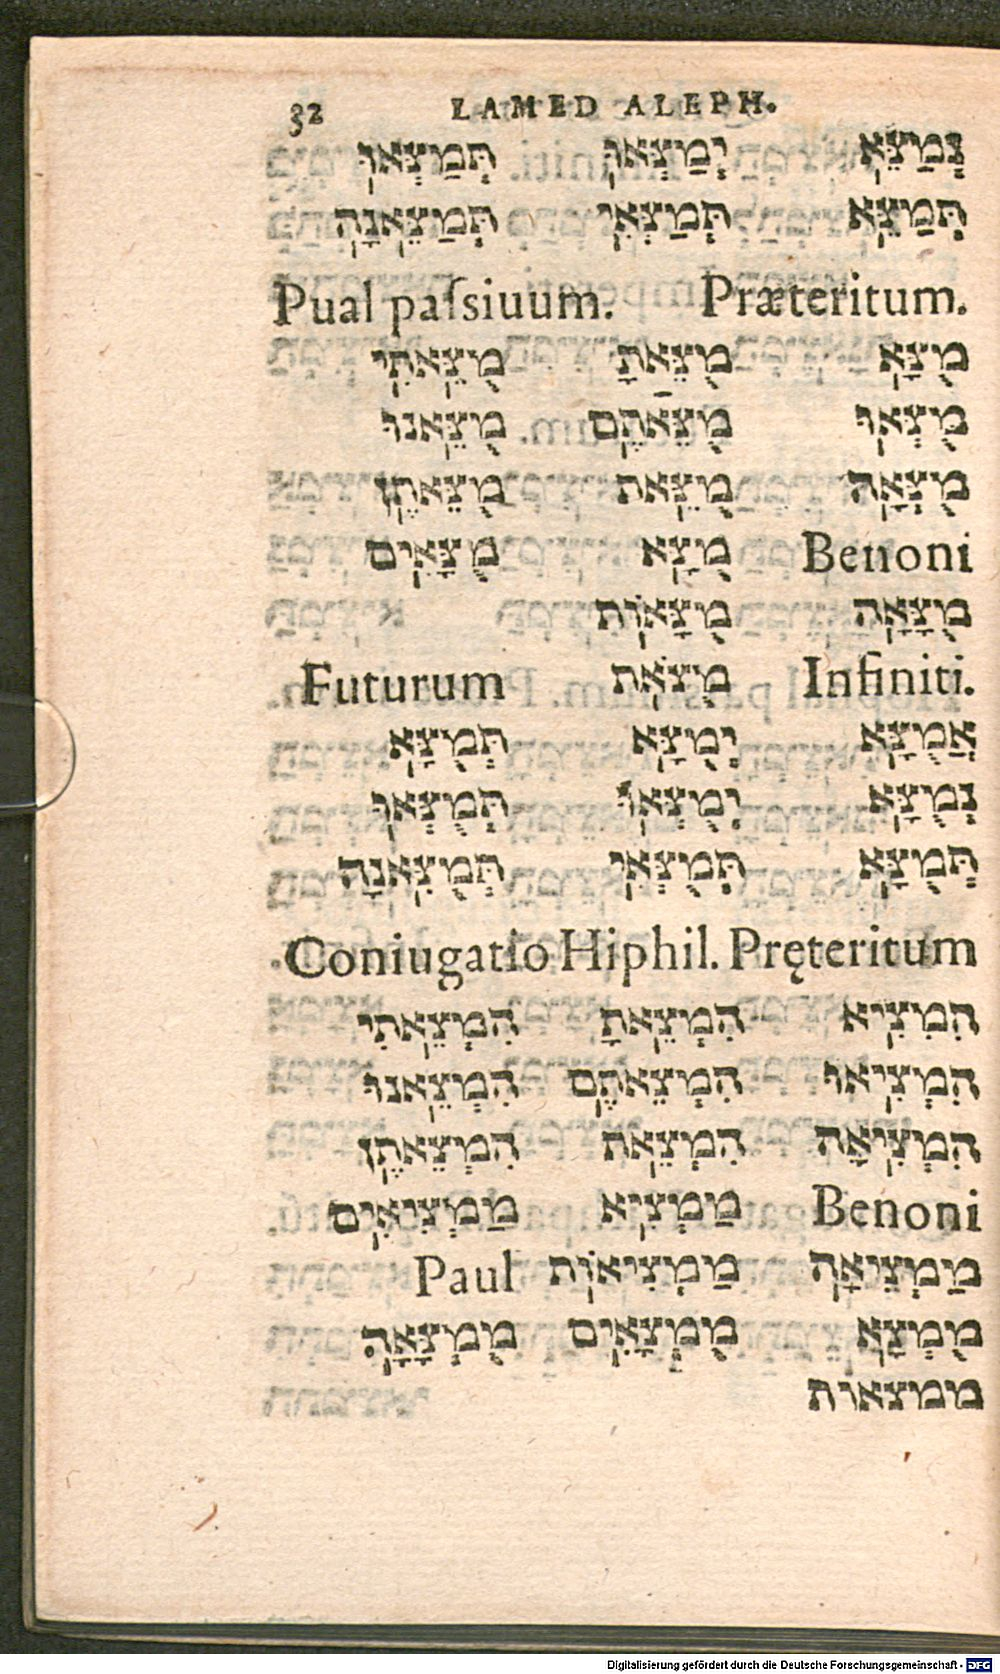 32 LAMED ALEPH.
נְמַצֵּא יְמַצְּאוּ תְּמַצְּאוּ
תְּמַצֵּא תְּמַצְּאִי תְּמַצֵּאנָה
Pual paſsiuum. Præteritum.
מֻצָּא מֻצֵּאתָ מֻצֵּאתִי
מֻצְּאוּ מֻצֵּאתֶם מֻצֵּאנוּ
מֻצְּאָה מֻצֵּאת מֻצֵּאתֶן
Benoni מֻצָּא מֻצָּאִים
מֻצָּאָה מֻצָּאוֹת
Infiniti. מֻצֹּאת Futurum
אֲמֻצָּא יְמֻצָּא תְּמֻצָּא
נְמֻצָּא יְמֻצְּאוּ תְּמֻצְּאוּ
תְּמֻצָּא תְּמֻצְּאִי תְּמֻצֶּאנָה
Coniugatio Hiphil. Pręteritum
הִמְצִיא הִמְצֵאתָ הִמְצֵאתִי
הִמְצִיאוּ הִמְצֵאתֶם הִמְצֵאנוּ
הִמְצִיאָה הִמְצֵאת הִמְצֵאתֶן
Benoni מַמְצִיא מַמְצִיאִים
מַמְצִיאָה מַמְצִיאוֹת Paul
מֻמְצָא מֻמְצָאִים מֻמְצָאָה
ממצאות
Digitalisierung gefördert durch die Deutsche Forschungsgemeinschaft - DFG